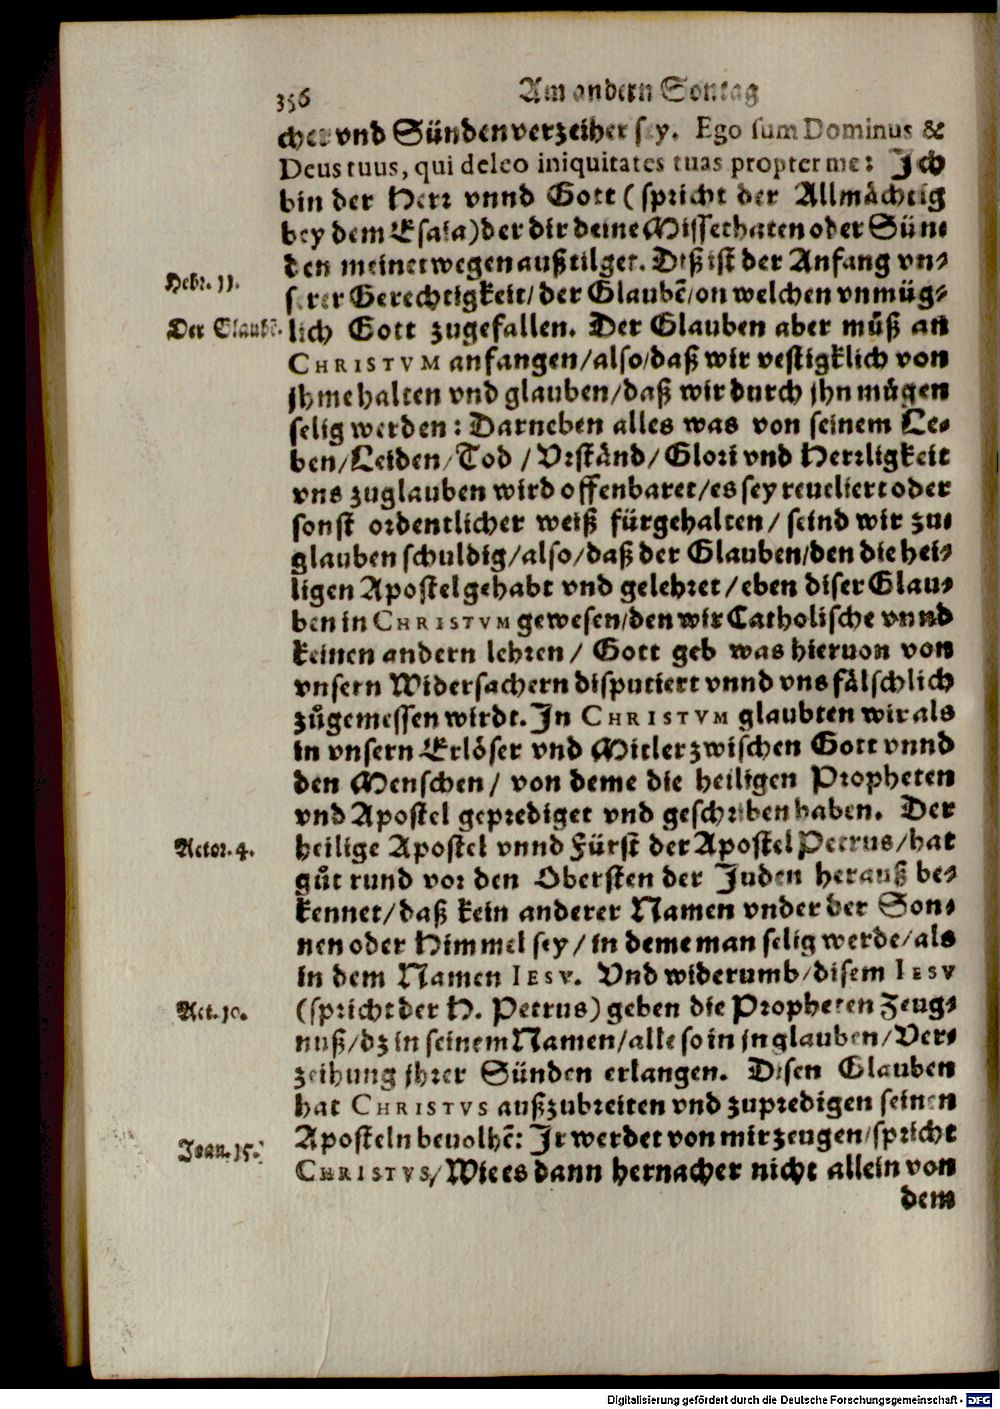 356
Am andern Sontag
cher vnd Sünden verzeiher sey. Ego sum Dominus &
Deus tuus, qui deleo iniquitates tuas propter me: Jch
bin der Herr vnnd Gott (spricht der Allmächtig
bey dem Esaia) der dir deine Missethaten oder Sün-
den meinetwegen außtilget. Diß ist der Anfang vn-
Hebr. 11.
serer Gerechtigkeit/ der Glaubē/ on welchen vnmüg-
Der Glaubē.
lich Gott zugefallen. Der Glauben aber müß an
CHRISTVM anfangen/ also/ daß wir vestigklich von
jhme halten vnd glauben/ daß wir durch jhn mügen
selig werden: Darneben alles was von seinem Le-
ben/ Leiden/ Tod / Vrständ/ Glori vnd Herrligkeit
vns zuglauben wird offenbaret/ es sey reueliert oder
sonst ordentlicher weiß fürgehalten/ seind wir zu-
glauben schuldig/ also/ daß der Glauben/ den die hei-
ligen Apostel gehabt vnd gelehret/ eben diser Glau-
ben in CHRISTVM gewesen/ den wir Catholische vnnd
keinen andern lehren/ Gott geb was hieruon von
vnsern Widersachern disputiert vnnd vns fälschlich
zůgemessen wirdt. Jn CHRISTVM glaubten wir als
in vnsern Erlöser vnd Mitler zwischen Gott vnnd
den Menschen/ von deme die heiligen Propheten
vnd Apostel geprediget vnd geschriben haben. Der
Actor. 4.
heilige Apostel vnnd Fürst der Apostel Petrus/ hat
gůt rund vor den Obersten der Juden herauß be-
kennet/ daß kein anderer Namen vnder der Son-
nen oder Himmel sey/ in deme man selig werde/ als
in dem Namen IESV. Vnd widerumb/ disem IESV
Act. 10.
(spricht der H. Petrus) geben die Propheten Zeug-
nuß/ dz in seinem Namen/ alle so in jn glauben/ Ver-
zeihung jhrer Sünden erlangen. Disen Glauben
hat CHRISTVS außzubreiten vnd zupredigen seinen
Joan. 15.
Aposteln beuolhē: Jr werdet von mir zeugen/ spricht
CHRISTVS/ Wie es dann hernacher nicht allein von
dem
Digitalisierung gefördert durch die Deutsche Forschungsgemeinschaft - DFG